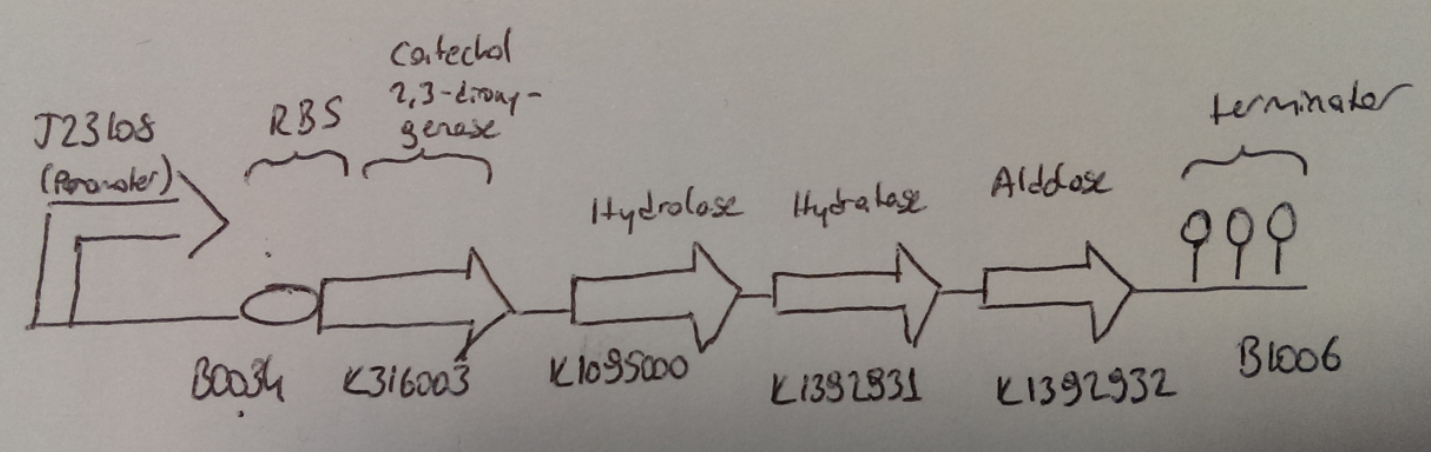 J23108
(Promoter)
RBS
Catechol
2,3-dioxy-
genase
Hydrolase
Hydratase
Alddase
terminator
B0034
K316003
K1095000
K1392931
K1392932
B1006